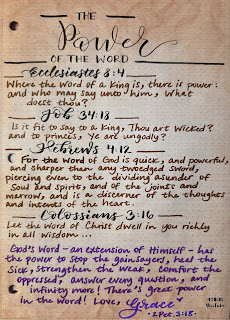 THE
Power
OF THE WORD
Ecclesiastes 8:4
Where the word of a King is, there is power:
and who may say unto him, What
doest thou?
Job 34:18
Is it fit to say to a King, Thou art wicked?
and to princes, Ye are ungodly?
Hebrews 4:12
For the word of God is quick, and powerful,
and sharper than any twoedged sword,
piercing even to the dividing asunder of
Soul and spirit, and of the joints and
marrow, and is a discerner of the thoughts
and intents of the heart.
Colossians 3:16
Let the word of Christ dwell in you richly
in all wisdom....
God's Word - an extension of Himself - has
the power to stop the gainsayers, heal the
Sick, strengthen the weak, comfort the
oppressed, answer every question, and
infinity more! There's great power
in the word! Love, Grace
2 Pet. 3:18
YouTube